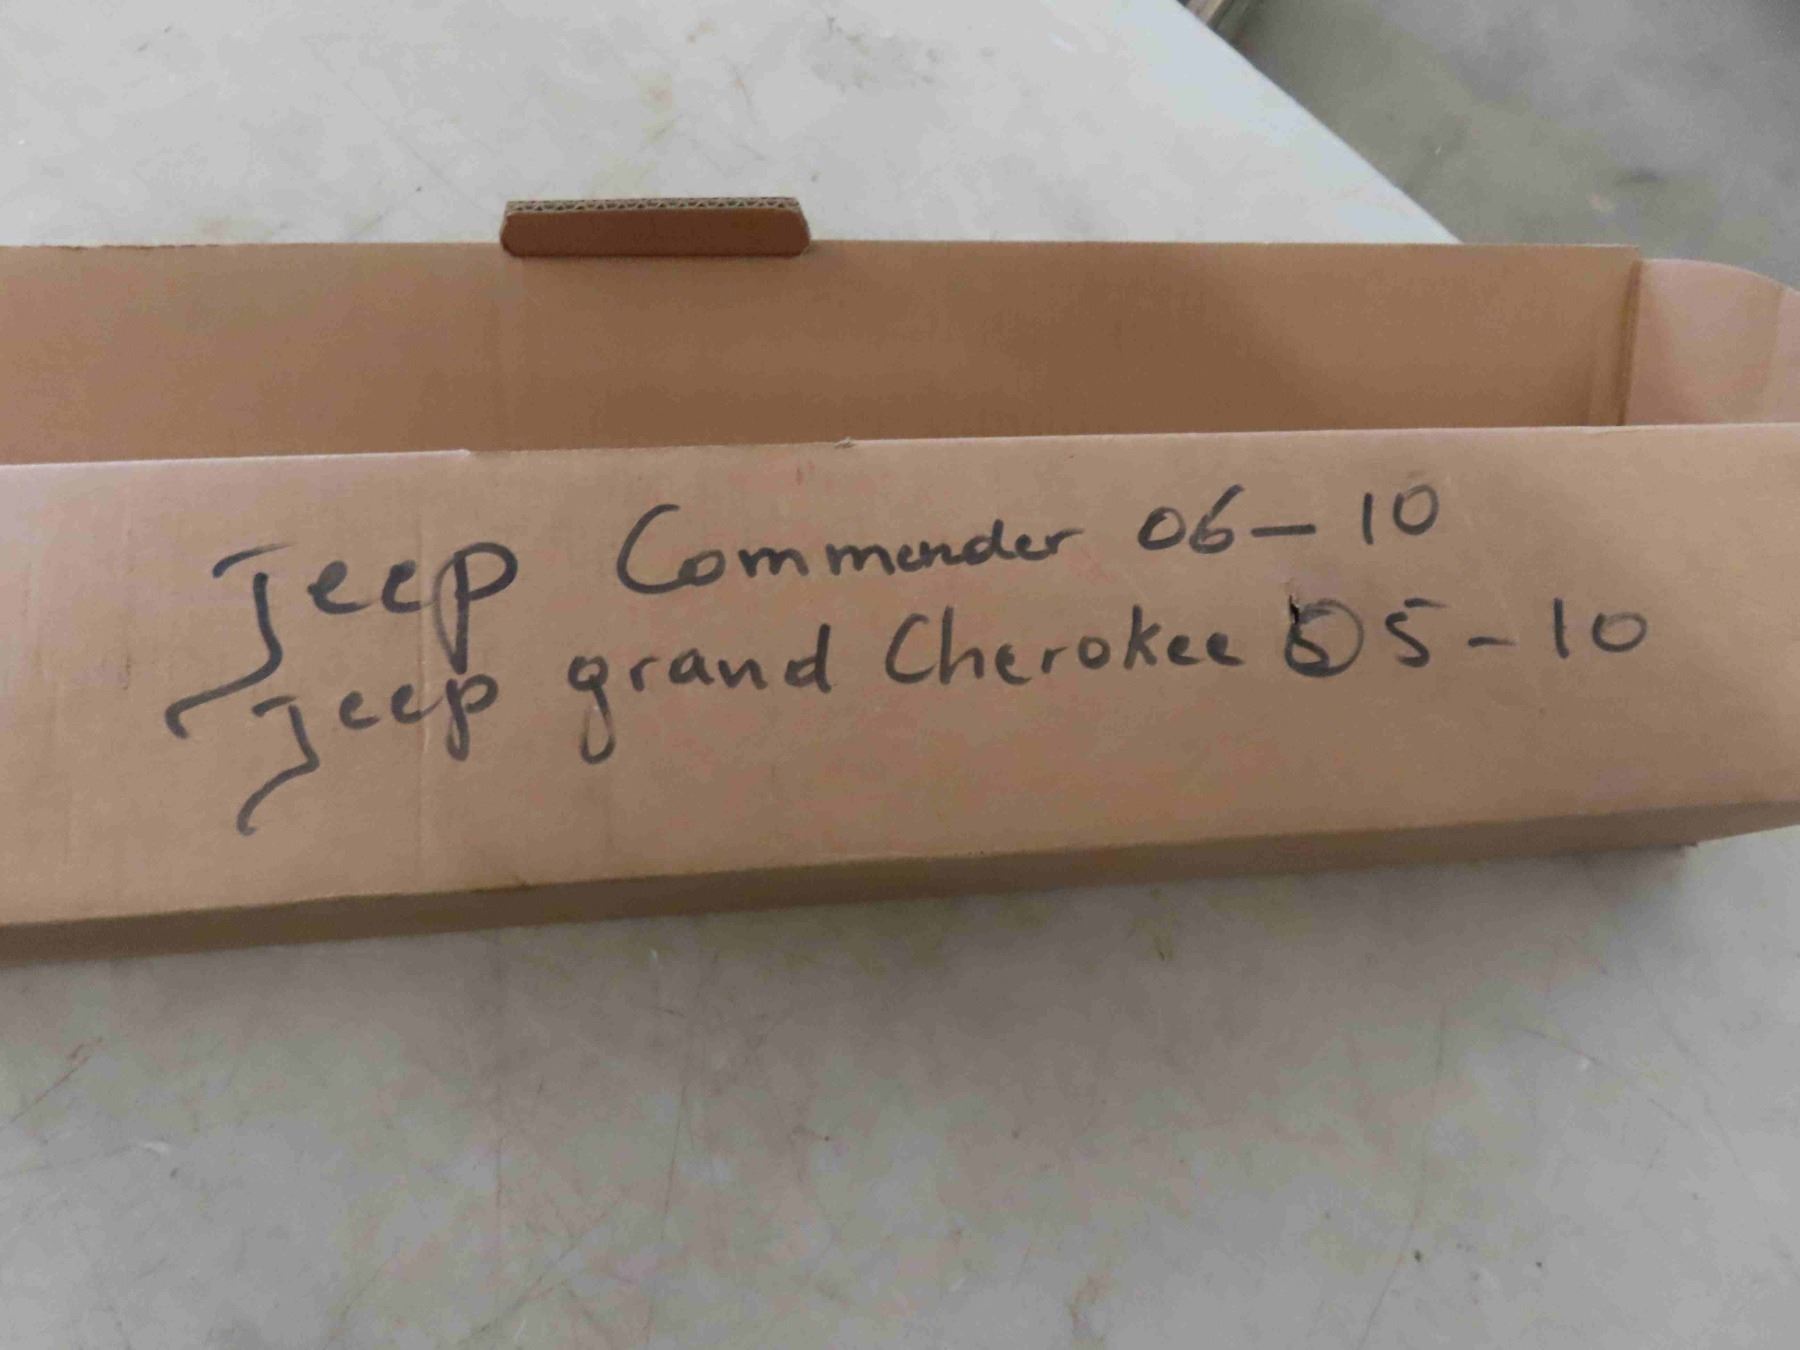 Jeep Commander 06-10
Jeep grand Cherokee 05-10